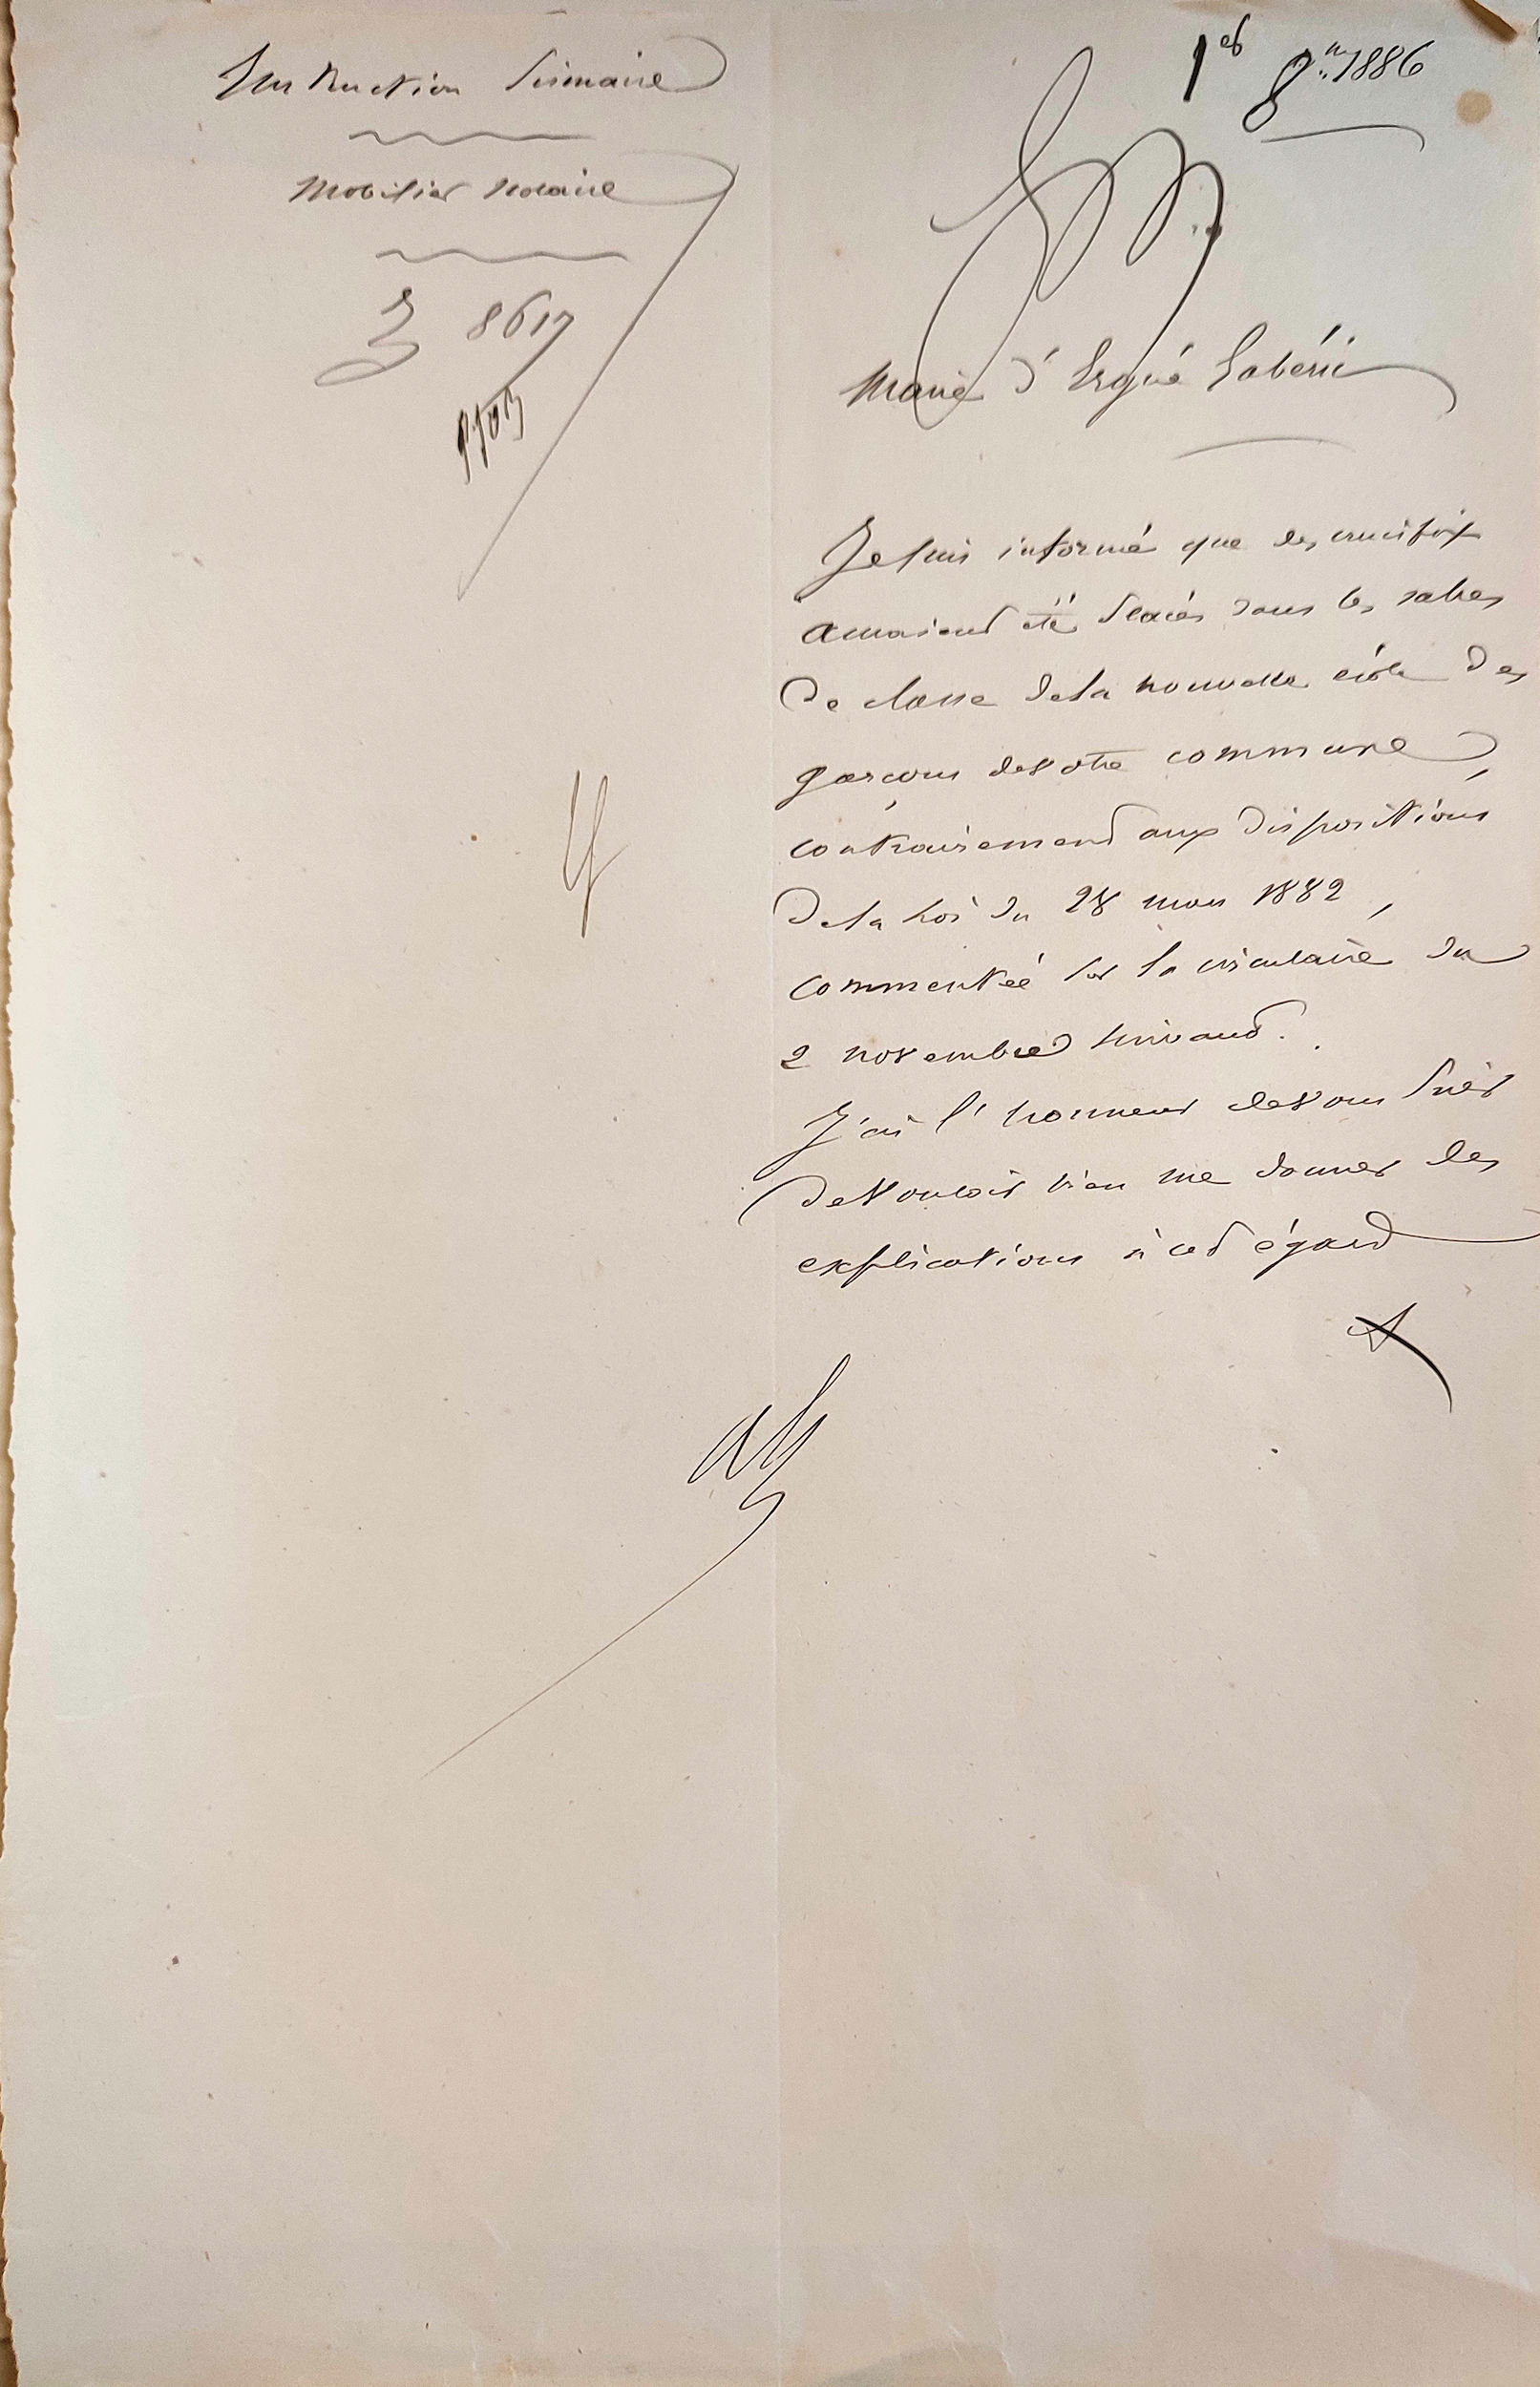 Instruction Primaire
Mobilier scolaire
8617
1er 8bre 1886
Maire d'Ergué Gabéric
Je suis informé que des crucifix
auraient été placés dans les salles
de classe de la nouvelle école des
garçons de votre commune,
contrairement aux dispositions
de la loi du 28 mars 1882,
commentée par la circulaire du
2 novembre suivant.
J'ai l'honneur de vous prier
de vouloir bien me donner des
explications à cet égard